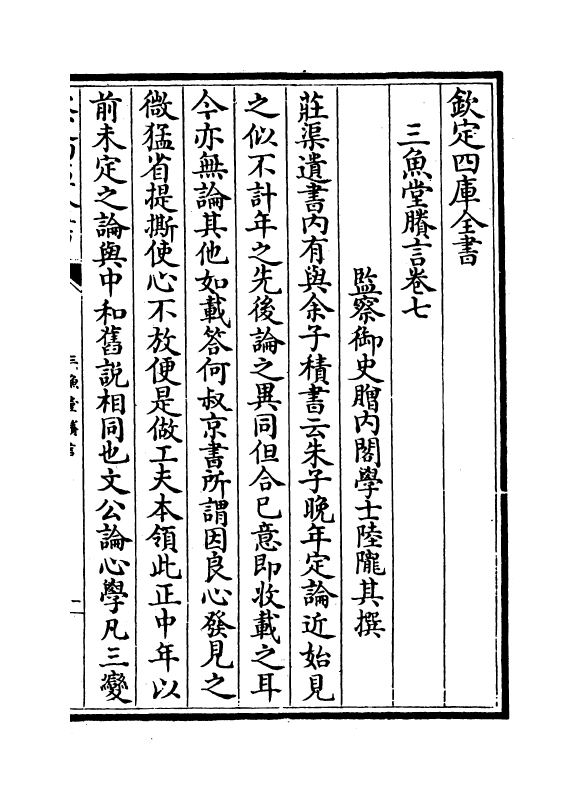 欽定四庫全書
三魚堂賸言卷七
監察御史贈內閣學士陸隴其撰
莊渠遺書內有與余子積書云朱子晚年定論近始見
之似不計年之先後論之異同但合已意即收載之耳
今亦無論其他如載答何叔京書所謂因良心發見之
微猛省提撕使心不放便是做工夫本領此正中年以
前未定之論與中和舊説相同也文公論心學凡三變
三魚堂賸言